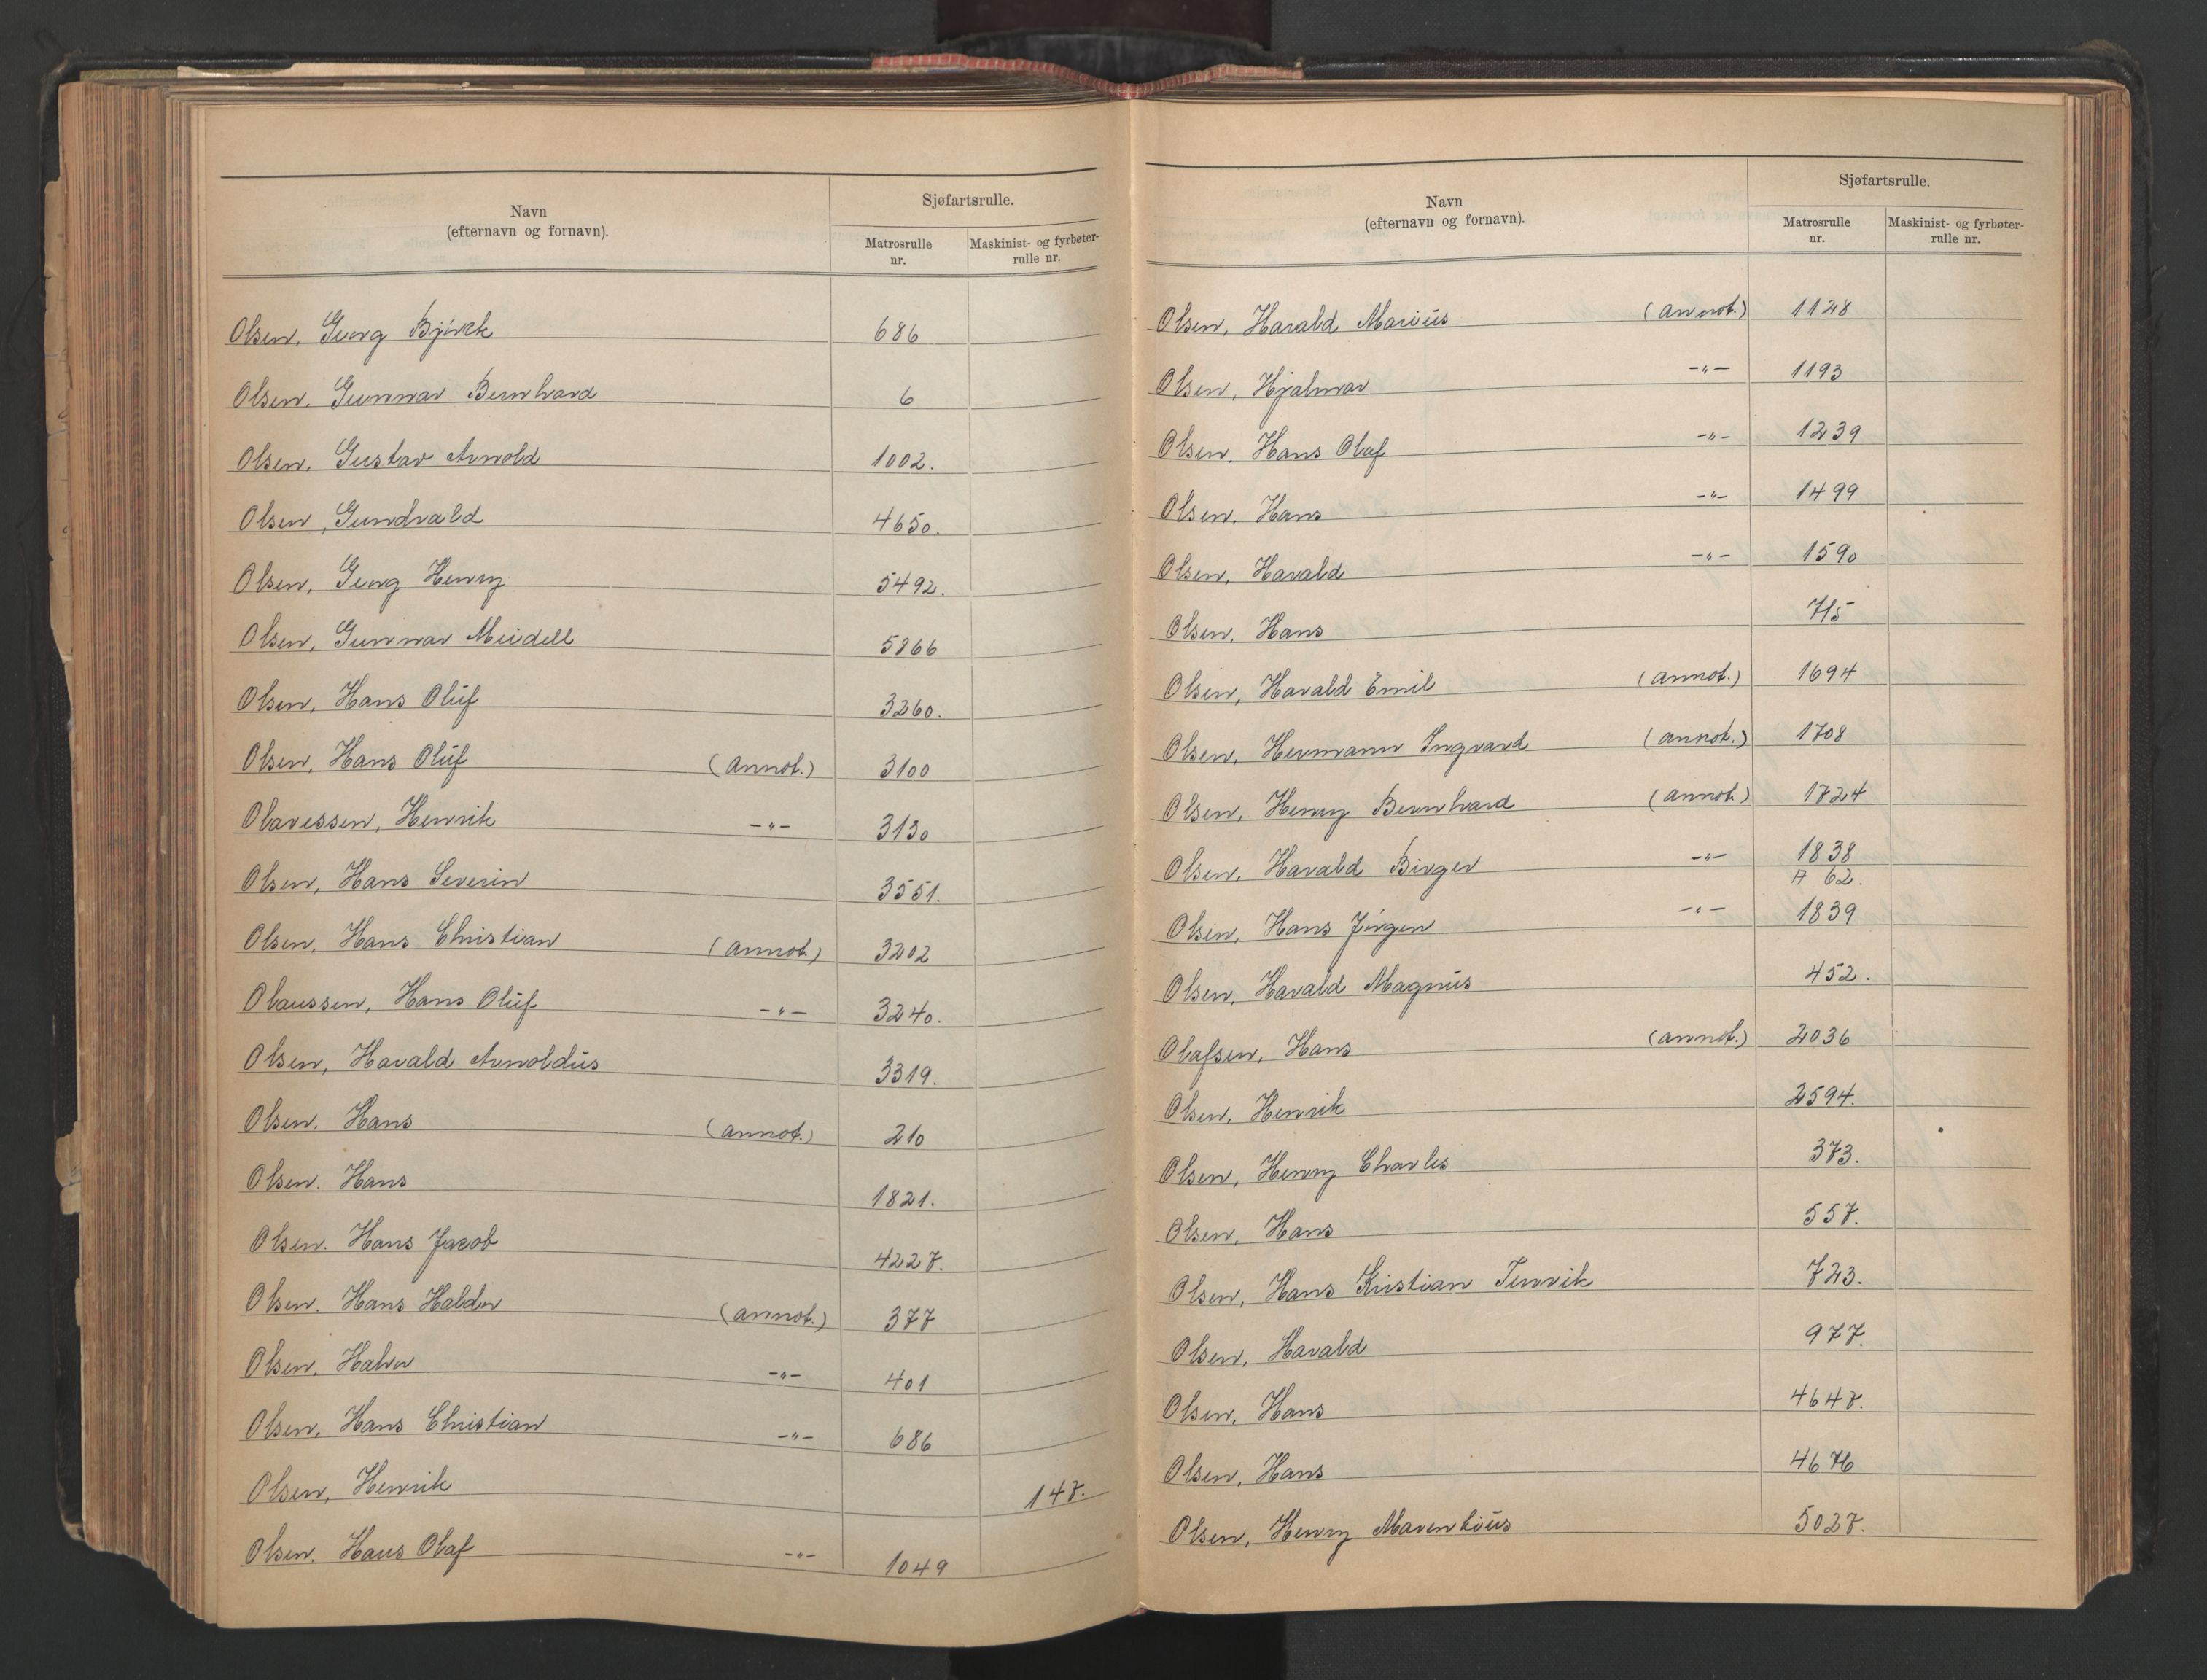 Navn
(efternavn og fornavn).
Sjøfartsrulle.
Matrosrulle nr.
Maskinist- og fyrbøter-rulle nr.
Olsen, Georg Bjørck 686
Olsen, Gunnar Bernhard 6
Olsen, Gustav Arnold 1002.
Olsen, Gundvald 4650.
Olsen, Georg Henry 5492.
Olsen, Gunnar Meidell 5866
Olsen, Hans Oluf 3260.
Olsen, Hans Oluf (annot.) 3100
Olavessen, Henrik -"- 3130
Olsen, Hans Severin 3551.
Olsen, Hans Christian (annot.) 3202
Olaussen, Hans Oluf -"- 3240.
Olsen, Harald Arnoldus 3319.
Olsen, Hans (annot.) 210
Olsen. Hans 1821.
Olsen. Hans Jacob 4227.
Olsen. Hans Haldor (annot.) 377
Olsen, Halvor -"- 401
Olsen, Hans Christian -"- 686
Olsen, Henrik 147.
Olsen. Hans Olaf -"- 1049
Navn
(efternavn og fornavn).
Sjøfartsrulle.
Matrosrulle nr.
Maskinist- og fyrbøter-rulle nr.
Olsen, Harald Marius (annot.) 1128
Olsen, Hjalmar -"- 1193
Olsen, Hans Olaf -"- 1239
Olsen, Hans -"- 1499
Olsen, Harald -"- 1590
Olsen, Hans 715
Olsen, Harald Emil (annot.) 1694
Olsen, Hermann Ingvard (annot.) 1708
Olsen, Henry Bernhard (annot.) 1724
Olsen, Harald Birger -"- 1838
A 62.
Olsen, Hans Jørgen -"- 1839
Olsen, Harald Magnus 452.
Olafsen, Hans (annot.) 2036
Olsen, Henrik 2594.
Olsen, Henry Charles 373.
Olsen, Hans 557.
Olsen, Hans Kristian 723.
Olsen, Harald 977.
Olsen, Hans 4647.
Olsen, Hans 4676
Olsen, Henry 5027.